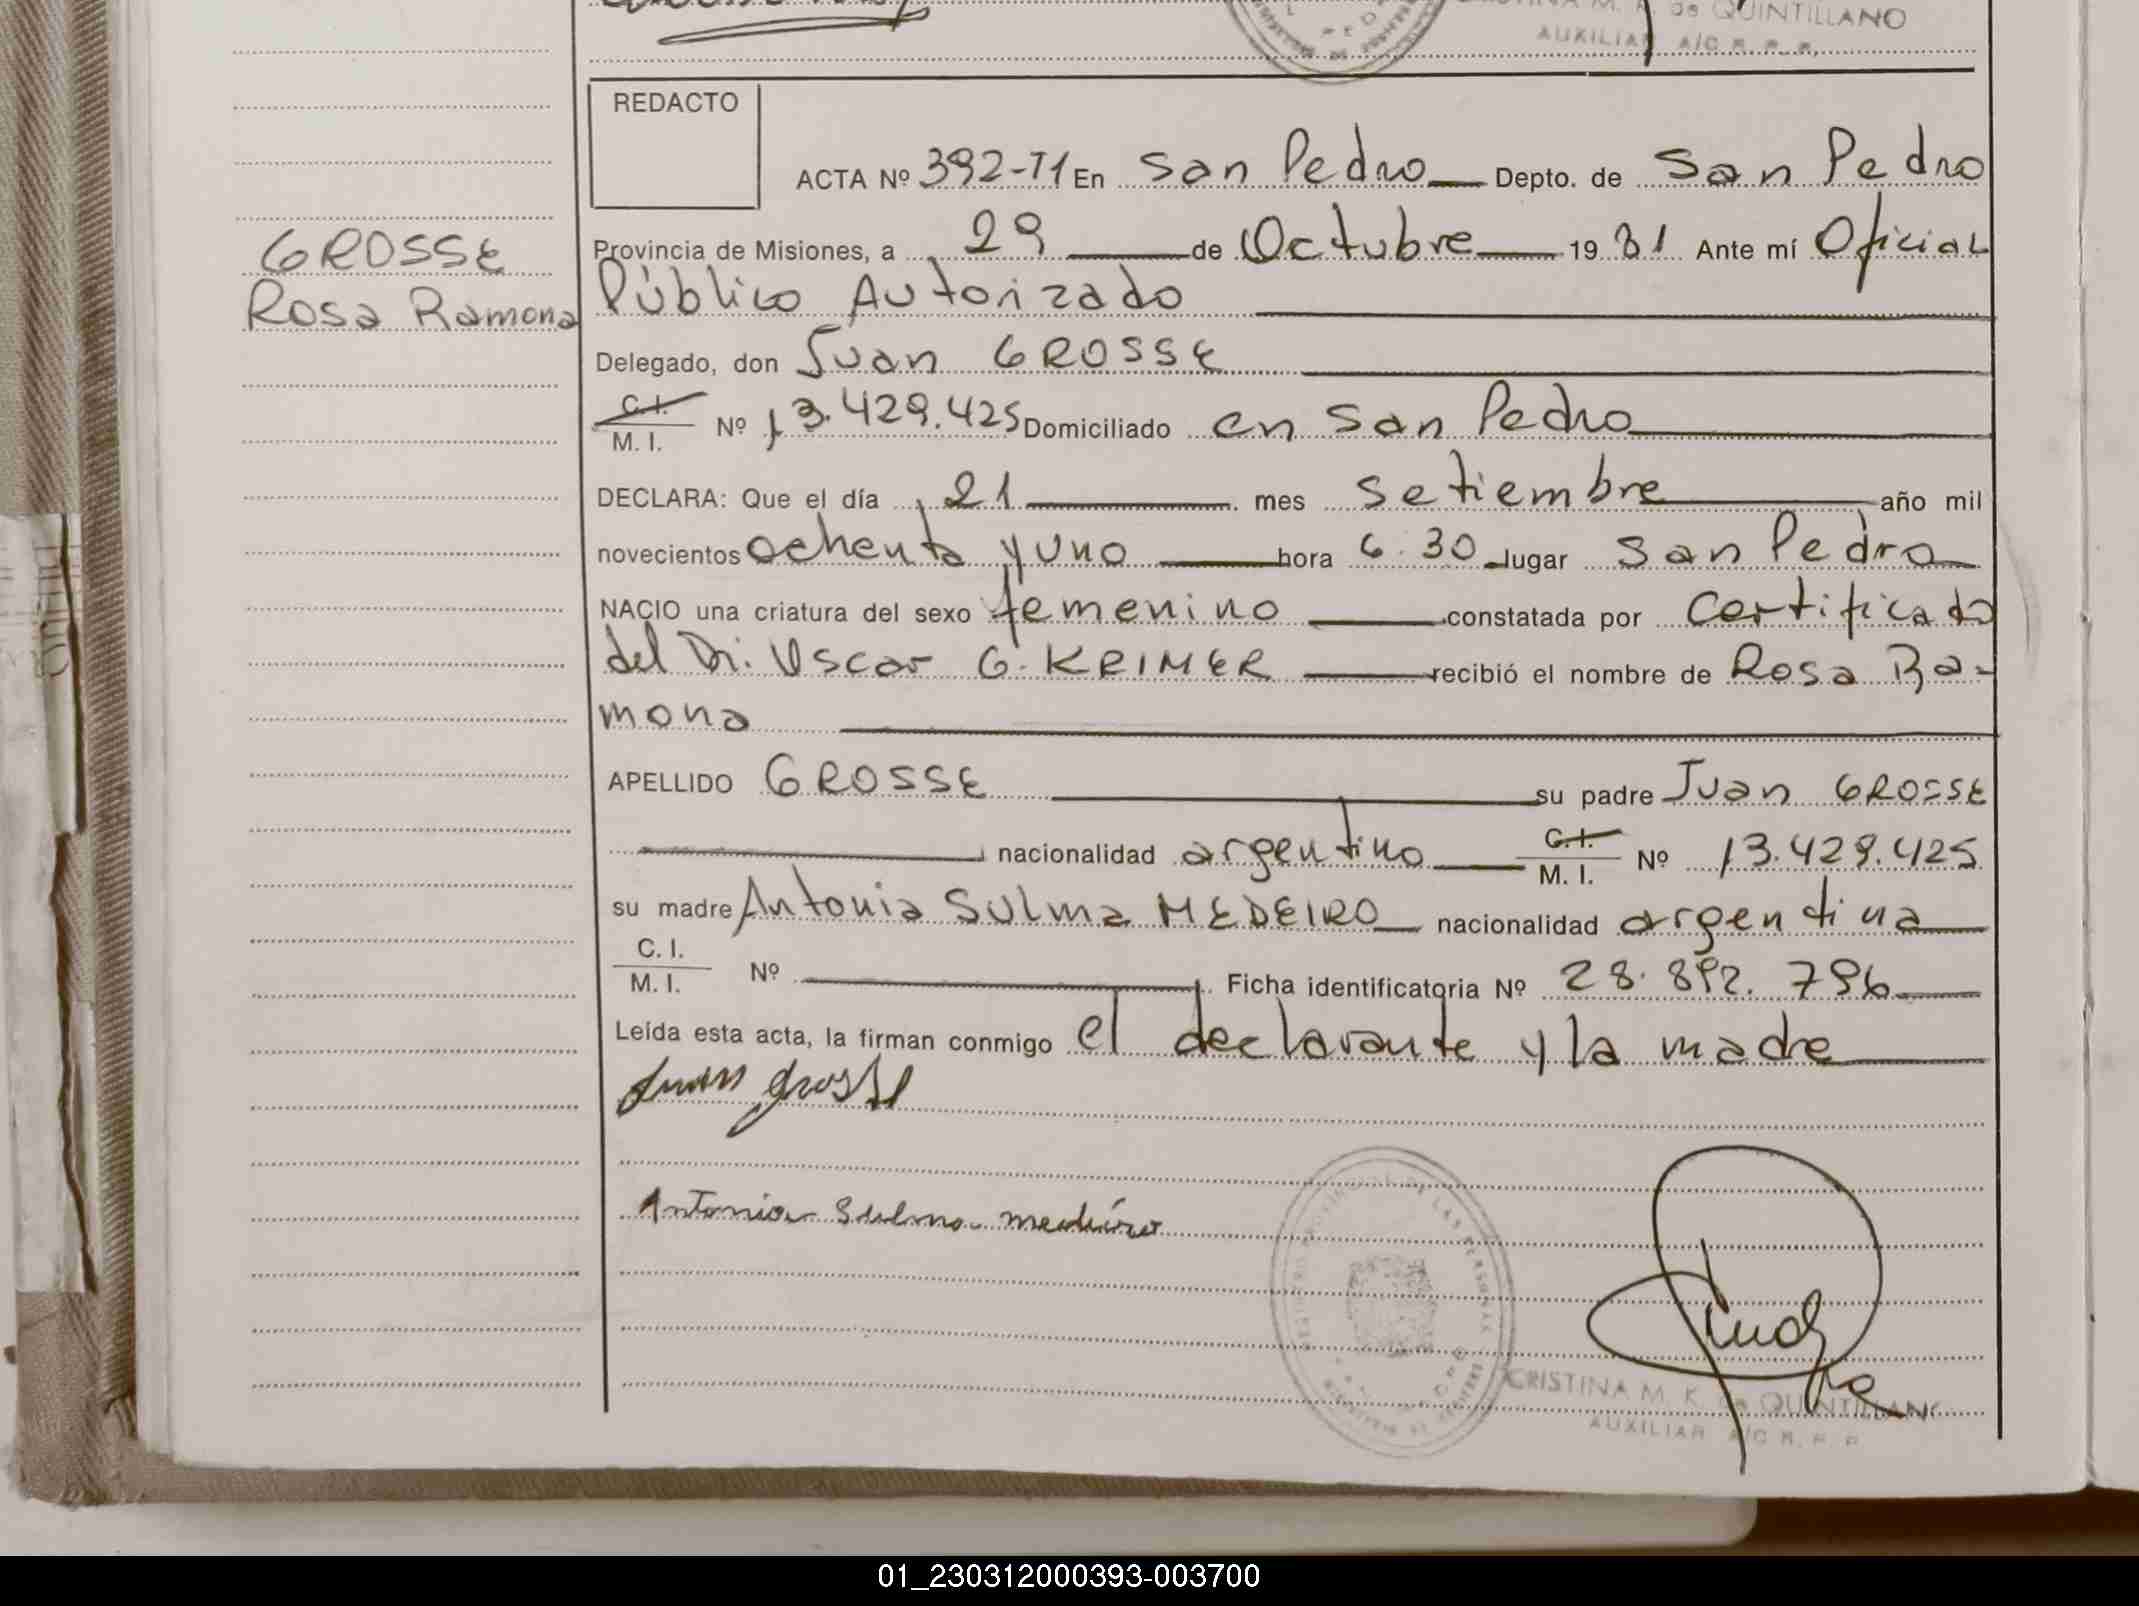 de QUINTILLANO
AUXILIAR A/C R. P. P.
REDACTO
ACTA Nº 392-T1 En San Pedro Depto. de San Pedro
GROSSE
Rosa Ramona
Provincia de Misiones, a 29 de Octubre 19 81 Ante mí Oficial
Público Autorizado
Delegado, don Juan GROSSE
C. I.
M. I. Nº 13.429.425 Domiciliado en San Pedro
DECLARA: Que el día 21 mes Setiembre año mil
novecientos ochenta y uno hora 6.30 lugar San Pedro
NACIO una criatura del sexo femenino constatada por Certificado
del Dr. Oscar G. KRIMER recibió el nombre de Rosa Ra-
mona
APELLIDO GROSSE su padre Juan GROSSE
nacionalidad argentino C. I.
M. I. Nº 13.429.425
su madre Antonia Sulma MEDEIRO nacionalidad argentina
C. I.
M. I. Nº Ficha identificatoria Nº 28.892.796
Leída esta acta, la firman conmigo el declarante y la madre
Juan Grosse
Antonia Sulma medeiro
CRISTINA M. K. de QUINTILLANO
AUXILIAR A/C R. P. P.
01_230312000393-003700